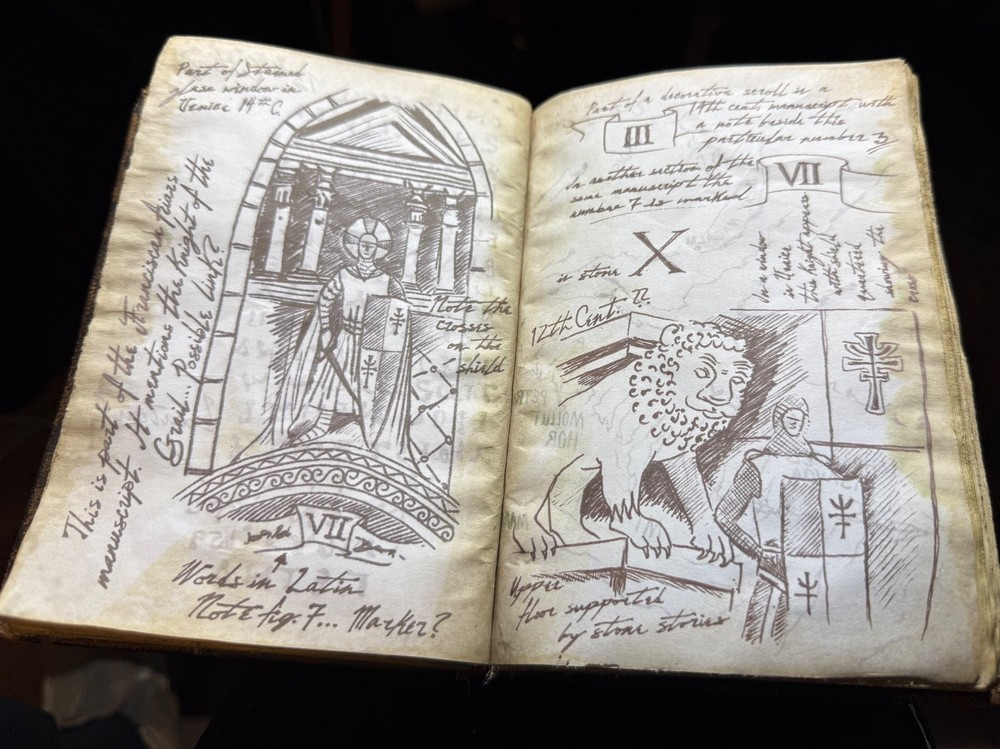 Part of Stained
glass window in
Venice 14th C.
This is part of the Franciscan friars
manuscript. It mentions the Knight of the
Grail... Possible link?
Note the
crosses
on the
shield
VII
Words in Latin
Note fig. 7... Marker?
Part of a decorative scroll in a
14th cent manuscript with
a note beside this
particular number 3
III
In another section of the
same manuscript the
number 7 is marked
VII
in stone X
12th Cent. ??
In a window
in Venice
this knight appears
with shield
quartered
showing the
Upper
floor supported
by stone stories